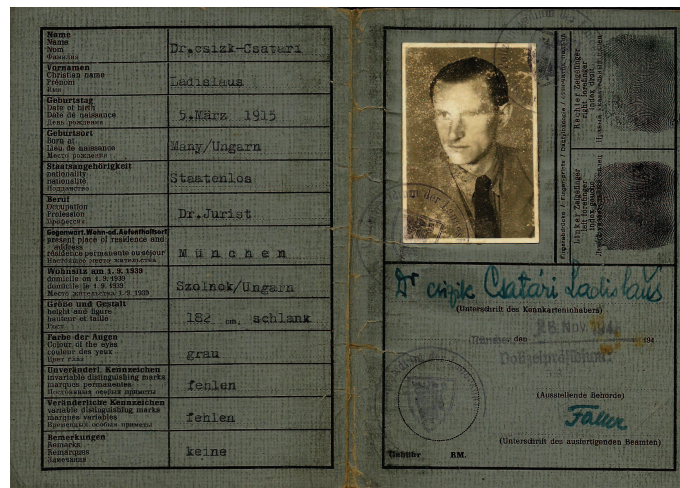 Name
Name
Nom
Фамилия
Dr.csizk-Csatári
Vornamen
Christian name
Prénom
Имя
Ladislaus
Geburtstag
Date of birth
Date de naissance
День рождения
5.März 1915
Geburtsort
Born at
Lieu de naissance
Место рождения
Many/Ungarn
Staatsangehörigkeit
nationality
nationalité
Подданство
Staatenlos
Beruf
Occupation
Profession
Профессия
Dr.Jurist
Gegenwärt.Wohn-od.Aufenthaltsort
present place of residence and
address
résidence permanente ou séjour
Настоящее место жительства
München
Wohnsitz am 1. 9. 1939
domicile on 1. 9. 1939
domicile le 1. 9. 1939
Место жительства 1. 9. 1939
Szolnok/Ungarn
Größe und Gestalt
height and figure
hauteur et taille
Рост
182 cm, schlank
Farbe der Augen
Colour of the eyes
couleur des yeux
Цвет глаз
grau
Unveränderl. Kennzeichen
invariable distinguishing marks
marques permanentes
Постоянные особые приметы
fehlen
Veränderliche Kennzeichen
variable distinguishing marks
marques variables
fehlen
Bemerkungen
Remarks
Remarques
Замечания
keine
Rechter Zeigefinger
right forefinger
index droit
Linker Zeigefinger
left forefinger
index gauche
Dr csizik Csatári Ladislaus
(Unterschrift des Kennkarteninhabers)
München, den 26. Nov. 194
(Ausstellende Behörde)
Faller
(Unterschrift des ausfertigenden Beamten)
Gebühr RM.